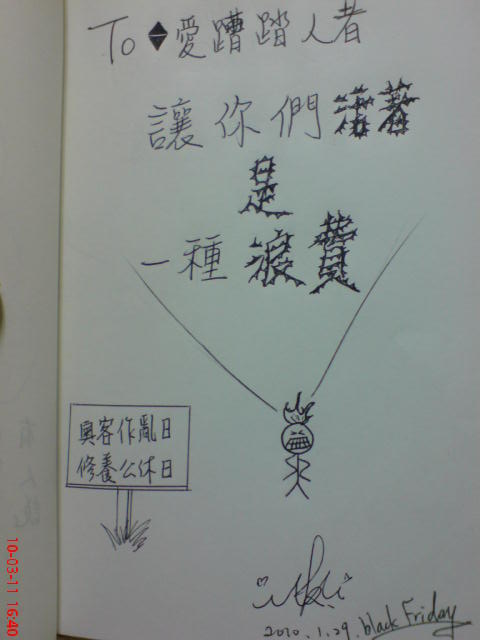 To ♦愛蹧踏人者
讓你們活著
是
一種浪費
奧客作亂日
修養公休日
2010.1.29. black Friday
10-03-11 16:40